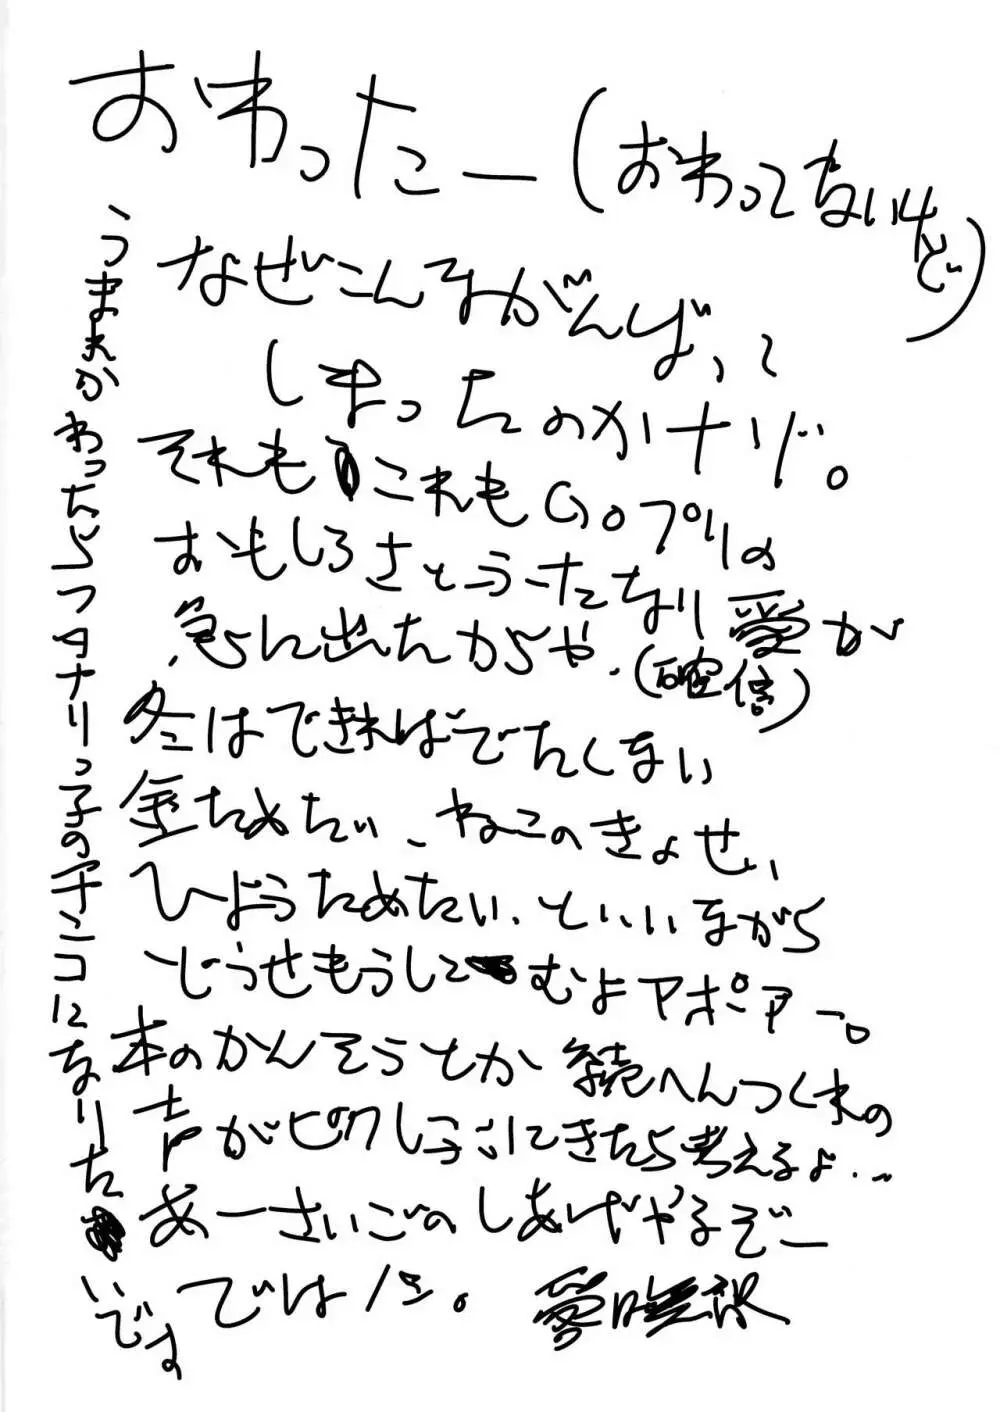 おわったー(おわってないけど)
なぜこんながんばって
しまったのかナゾ。
それもこれもGOプリの
おもしろさとうたなり愛が
急に出たからや。(確信)
冬はできればでたくない
金ためたい、ねこのきょせい
ひようためたい、といいながら
どうせもうしこむよアポアー。
本のかんそうとか続へんつくれの
声がピクし子にきたら考えるよ…
あーさいごのしあげやるぞー
では
うまれかわったらフタナリっ子のチンコになりたいです